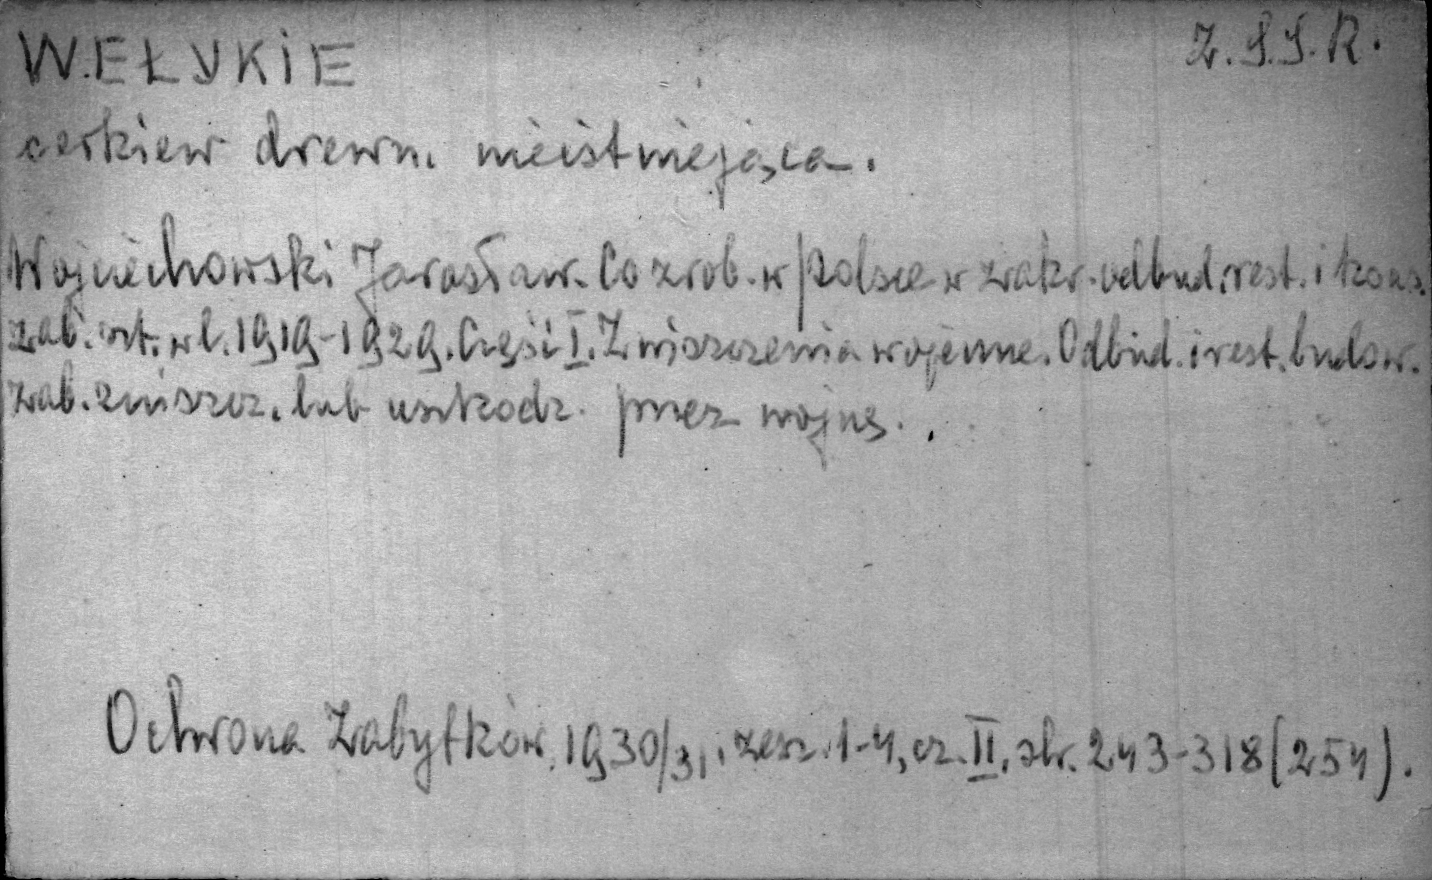 WEŁYKIE
Z.S.S.R.
cerkiew drewn. nieistniejąca.
Wojciechowski Jarosław. Co zrob. w Polsce w zakr. odbud. rest. i kons.
zab. szt. w l. 1919-1929. Część I. Zniszczenia wojenne. Odbud. i rest. budow.
zab. zniszcz. lub uszkodz. przez wojnę.
Ochrona Zabytków, 1930/31, zesz. 1-4, cz. II, str. 243-318 (254).